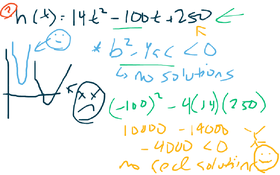 ? h(t) = 14t² - 100t + 250 ←
* b² - 4ac < 0
↳ no solutions
(-100)² - 4(14)(250)
10000 - 14000
-4000 < 0 ✓
no real solution